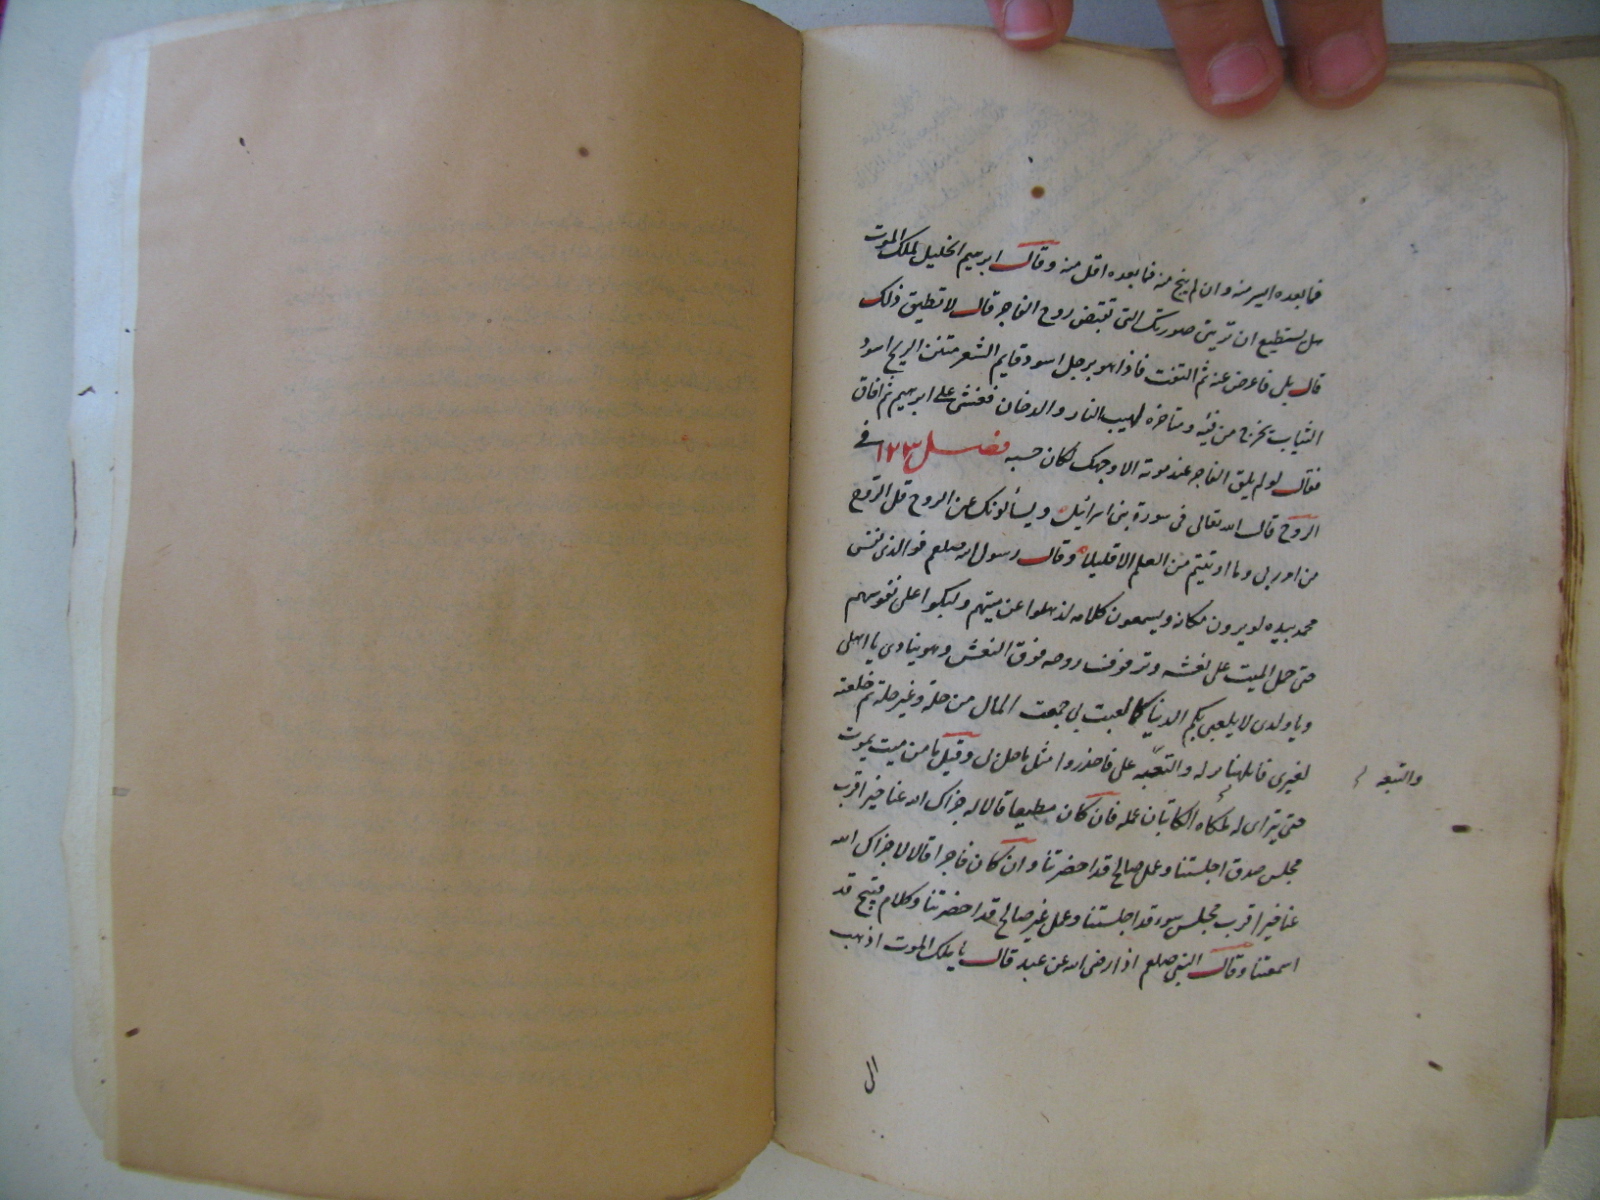 فما بعده ايسر منه وان لم ينج منه فما بعده اقل منه وقال ابرهيم الخليل لملك الموت
هل يستطيع ان تريني صورتك التى تقبض روح الفاجر قال لا تطيق ذلك
قال بلى فاعرض عنه ثم التفت فاذا هو برجل اسود قايم الشعر منتن الريح اسود
الثياب يخرج من فيه ومناخره لهيب النار والدخان فغشى على ابرهيم ثم افاق
فقال لو لم يلق الفاجر عند موته الا وجهك لكان حسبه فصل ١٢٣ في
الروح قال الله تعالى فى سورة بنى اسرائيل ويسألونك عن الروح قل الروح
من امر ربى وما اوتيتم من العلم الا قليلا وقال رسول الله صلعم فوالذى نفس
محمد بيده لو يرون مكانه ويسمعون كلامه لذهلوا عن ميتهم ولبكوا على نفوسهم
حتى حمل الميت على نعشه وترفرف روحه فوق النعش وهو ينادى يا اهلى
ويا ولدى لا يلعبن بكم الدنيا كما لعبت بى جمعت المال من حله وغير حله ثم خلفته
لغيرى فالمهنا له والتعبه على فاحذروا مثل ما حل بى وقيل ما من ميت يموت
والتبعه
حتى يترااى له ملكاه الكاتبان عمله فان كان مطيعا قالا له جزاك الله عنا خيرا قرب
مجلس صدق اجلستنا وعمل صالح قد احضرتنا وان كان فاجرا قالا لا جزاك الله
عنا خيرا قرب مجلس سوء قد اجلستنا وعمل غير صالح قد احضرتنا وكلام قبيح قد
اسمعتنا وقال النبى صلعم اذا رضى الله عن عبد قال يا ملك الموت اذهب
الى